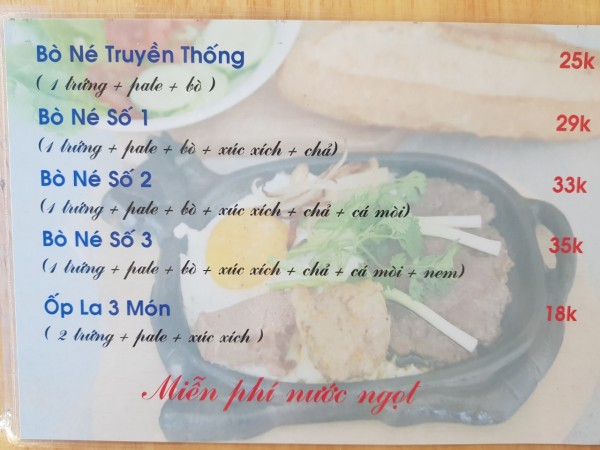 Bò Né Truyền Thống 25k
( 1 trứng + pate + bò )
Bò Né Số 1 29k
(1 trứng + pate + bò + xúc xích + chả)
Bò Né Số 2 33k
(1 trứng + pate + bò + xúc xích + chả + cá mòi)
Bò Né Số 3 35k
(1 trứng + pate + bò + xúc xích + chả + cá mòi + nem)
Ốp La 3 Món 18k
( 2 trứng + pate + xúc xích )
Miễn phí nước ngọt